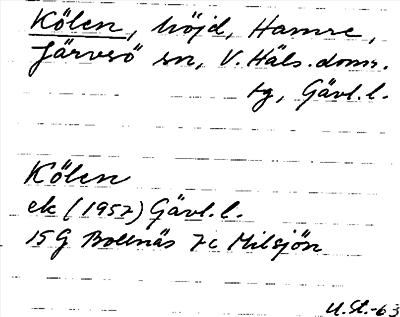 Kölen, höjd, Hamre,
Järvsö sn, V. Häls. doms.
tg, Gävl. l.
Kölen
ek (1957) Gävl. l.
15G Bollnäs 7c Milsjön
U.St.-63